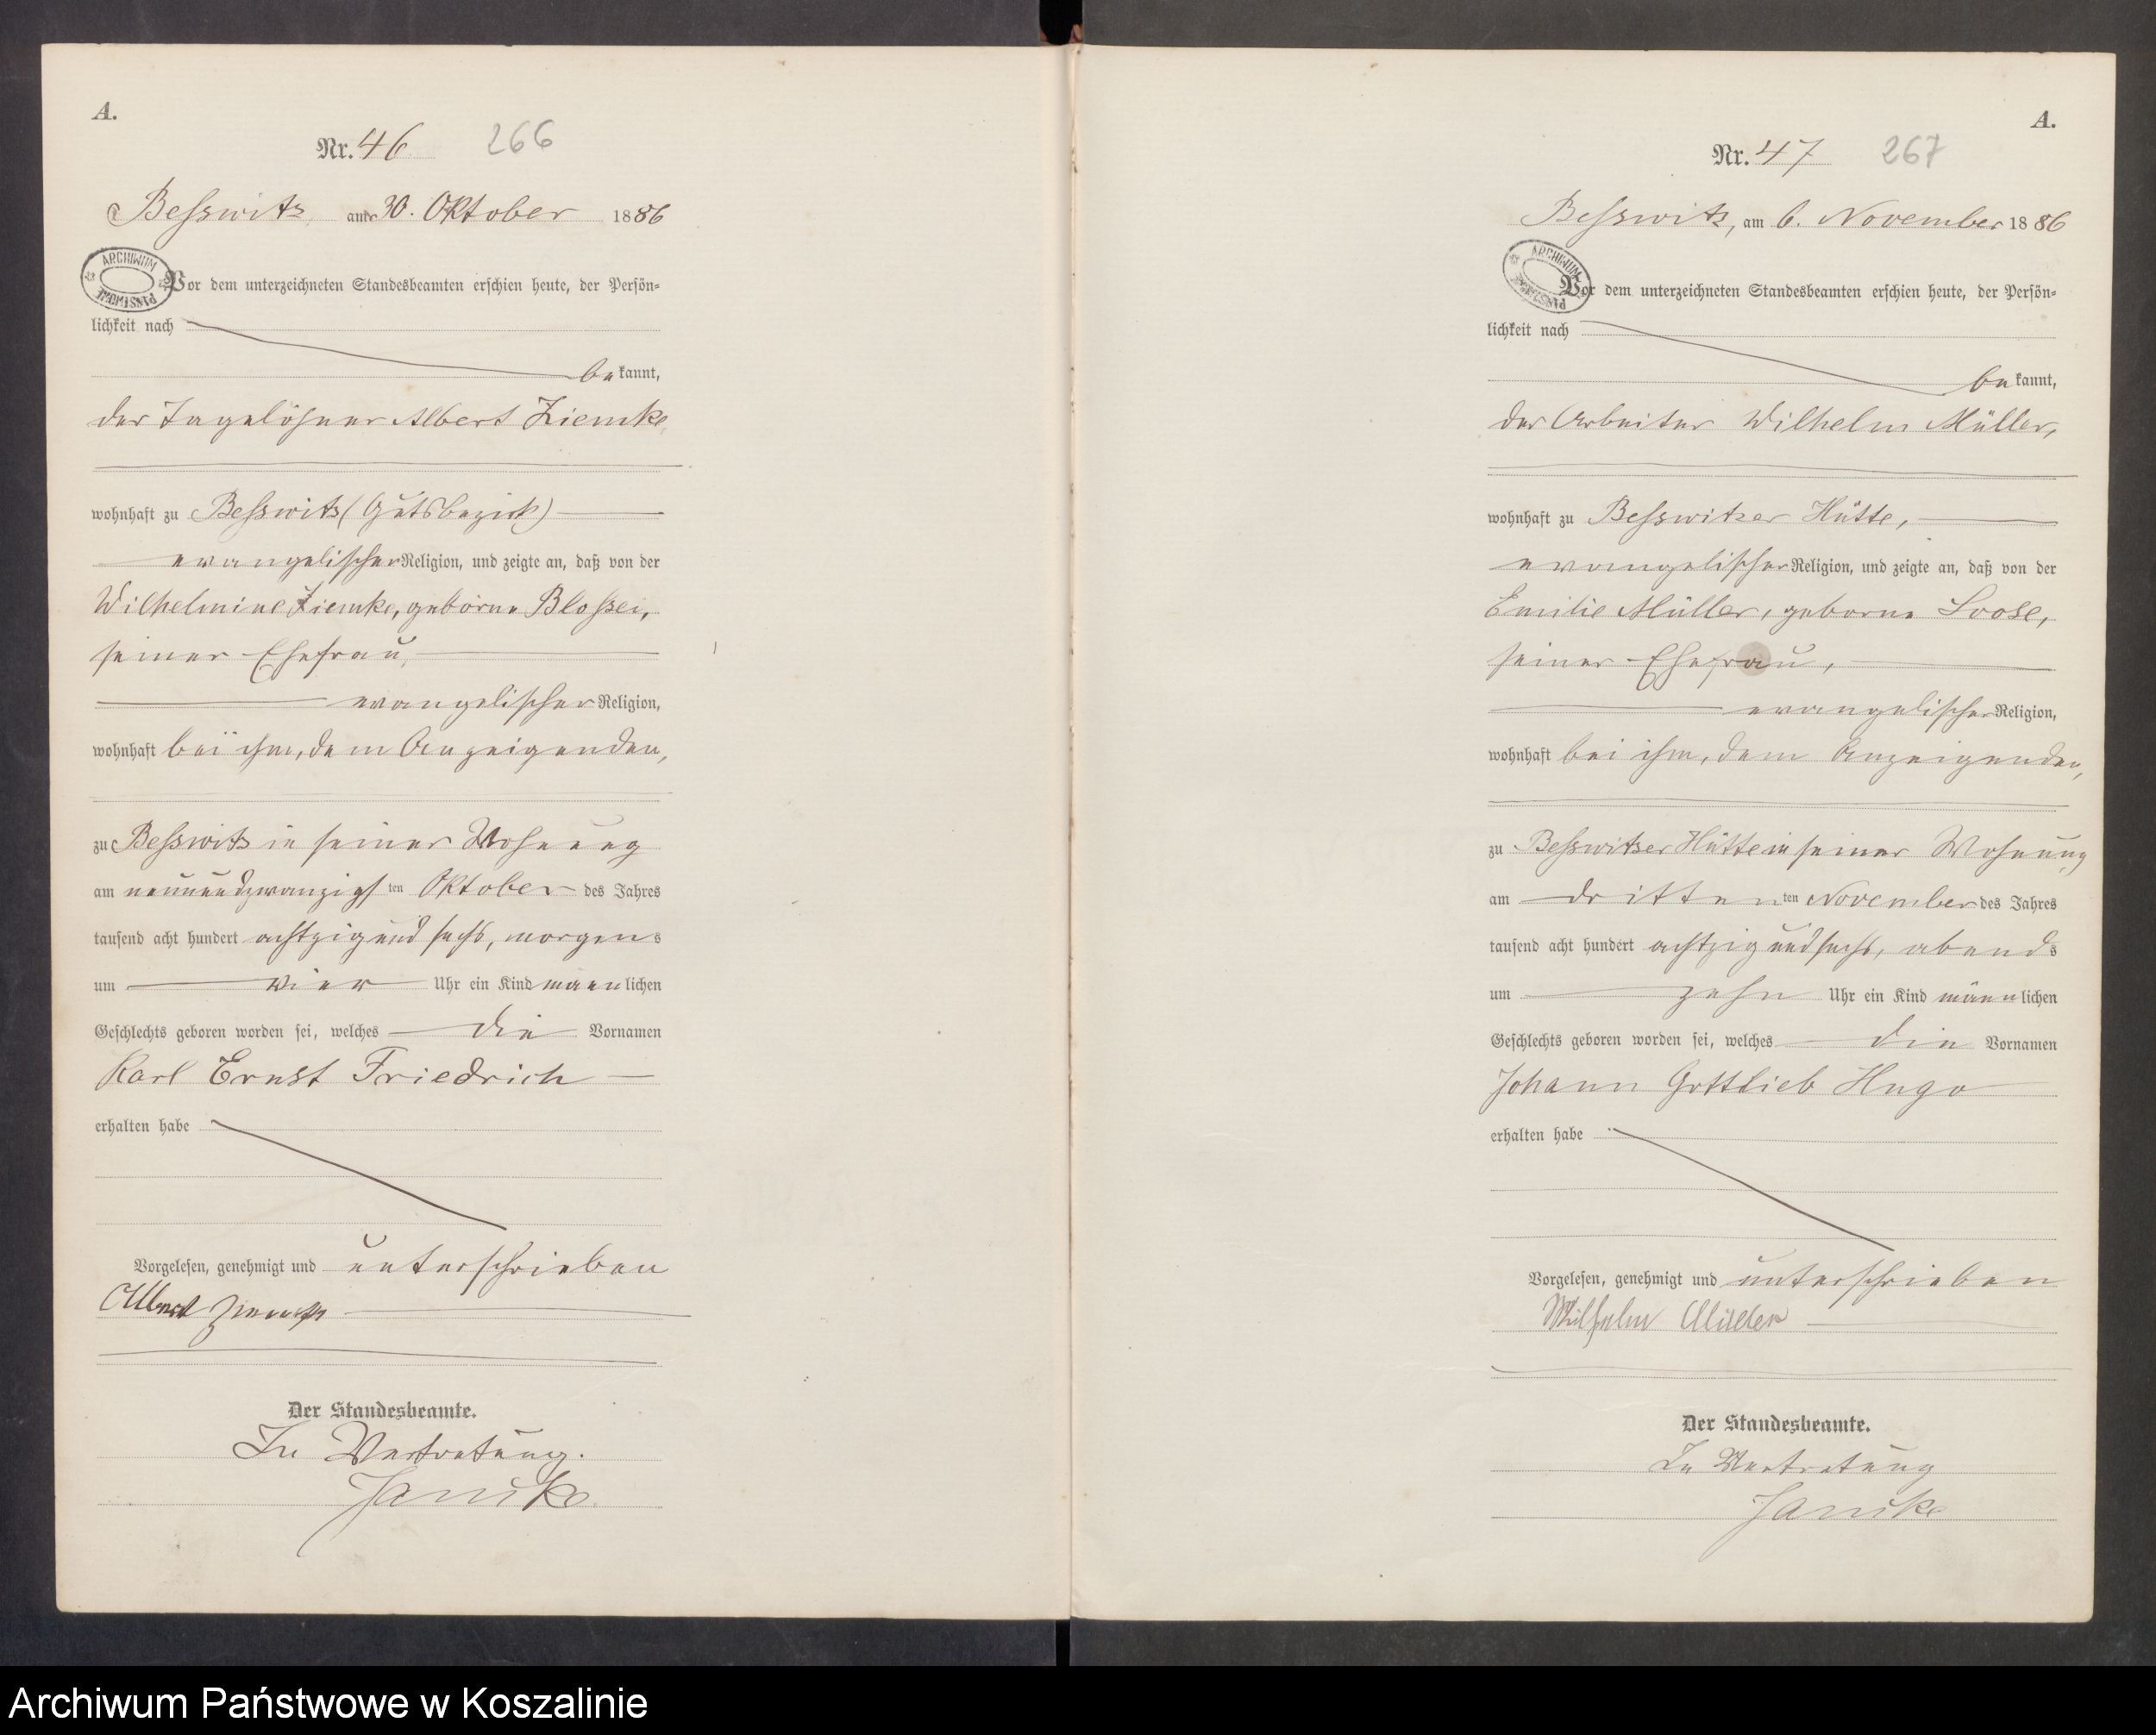 A.
Nr. 46 266
Besswitz, am 30. Oktober 1886
ARCHIWUM
Vor dem unterzeichneten Standesbeamten erschien heute, der Persön=
lichkeit nach
bekannt,
der Tagelöhner Albert Ziemke
wohnhaft zu Besswitz (Gutsbezirk)
evangelischer Religion, und zeigte an, daß von der
Wilhelmine Ziemke, geborne Blossei,
seiner Ehefrau,
evangelischer Religion,
wohnhaft bei ihm, dem Anzeigenden,
zu Besswitz in seiner Wohnung
am neunundzwanzigsten Oktober des Jahres
tausend acht hundert achtzig und sechs, morgens
um vier Uhr ein Kind männlichen
Geschlechts geboren worden sei, welches die Vornamen
Karl Ernst Friedrich
erhalten habe
Vorgelesen, genehmigt und unterschrieben
Albert Ziemke
Der Standesbeamte.
In Vertretung.
Janike
A.
Nr. 47 267
Besswitz, am 6. November 1886
ARCHIWUM
Vor dem unterzeichneten Standesbeamten erschien heute, der Persön=
lichkeit nach
bekannt,
der Arbeiter Wilhelm Müller,
wohnhaft zu Besswitzer Hütte,
evangelischer Religion, und zeigte an, daß von der
Emilie Müller, geborne Loose,
seiner Ehefrau,
evangelischer Religion,
wohnhaft bei ihm, dem Anzeigenden,
zu Besswitzer Hütte in seiner Wohnung
am dritten ten November des Jahres
tausend acht hundert achtzig und sechs, abends
um zehn Uhr ein Kind männlichen
Geschlechts geboren worden sei, welches die Vornamen
Johann Gottlieb Hugo
erhalten habe
Vorgelesen, genehmigt und unterschrieben
Wilhelm Müller
Der Standesbeamte.
In Vertretung
Janike
Archiwum Państwowe w Koszalinie